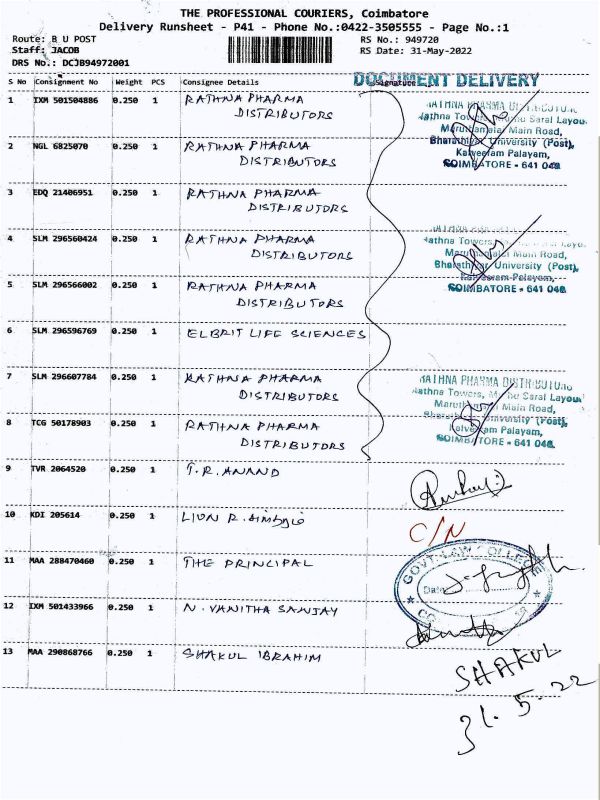 THE PROFESSIONAL COURIERS, Coimbatore
Delivery Runsheet - P41 - Phone No.:0422-3505555 - Page No.:1
Route: B U POST RS No.: 949720
Staff: JACOB RS Date: 31-May-2022
DRS No.: DCJB94972001
DOCUMENT DELIVERY
S No Consignment No Weight PCS Consignee Details Signature
1 IXM 501504886 0.250 1 RATHNA PHARMA
DISTRIBUTORS
RATHNA PHARMA DISTRIBUTORS
Rathna Towers, Saral Layou
Maruthamalai Main Road,
Bharathiyar University (Post),
Kalveeram Palayam,
COIMBATORE - 641 046.
2 NGL 6825070 0.250 1 RATHNA PHARMA
DISTRIBUTORS
3 EDQ 21406951 0.250 1 RATHNA PHARMA
DISTRIBUTORS
4 SLM 296560424 0.250 1 RATHNA PHARMA
DISTRIBUTORS
Rathna Towers,
Maruthamalai Main Road,
Bharathiyar University (Post),
Kalveeram Palayam,
COIMBATORE - 641 046.
5 SLM 296566002 0.250 1 RATHNA PHARMA
DISTRIBUTORS
6 SLM 296596769 0.250 1 ELBRIT LIFE SCIENCES
7 SLM 296607784 0.250 1 RATHNA PHARMA
DISTRIBUTORS
RATHNA PHARMA DISTRIBUTORS
Rathna Towers, Saral Layou
Maruthamalai Main Road,
Bharathiyar University (Post),
Kalveeram Palayam,
COIMBATORE - 641 046.
8 TCG 50178903 0.250 1 RATHNA PHARMA
DISTRIBUTORS
9 TVR 2064520 0.250 1 T.R. ANAND
10 KDI 205614 0.250 1 LION R.
C/N
11 MAA 288470460 0.250 1 THE PRINCIPAL
GOVT. LAW COLLEGE
Date
12 IXM 501433966 0.250 1 N. VANITHA SANJAY
13 MAA 290868766 0.250 1 SHAKUL IBRAHIM
SHAKUL
31.5.22